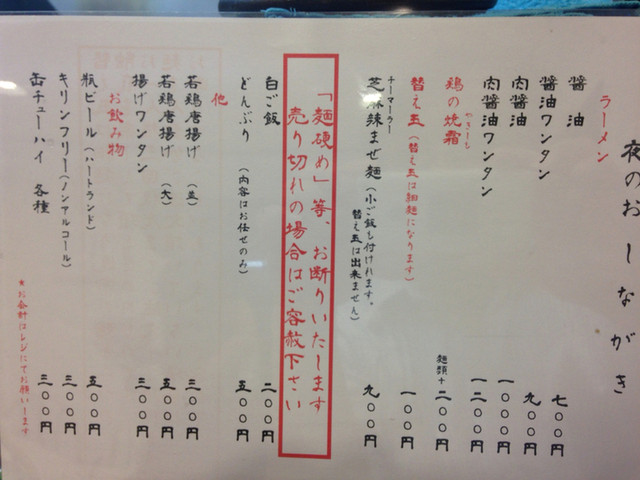 夜のおしながき
ラーメン
醤油 七〇〇円
醤油ワンタン 九〇〇円
肉醤油 一〇〇〇円
肉醤油ワンタン 一二〇〇円
鶏の焼霜 麺類+二〇〇円
やきしも
替え玉(替え玉は細麺になります) 一〇〇円
チーマーラー
芝麻辣まぜ麺(小ご飯も付けれます。 九〇〇円
替え玉は出来ません)
「麺硬め」等、お断りいたします
売り切れの場合はご容赦下さい
白ご飯 二〇〇円
どんぶり(内容はお任せのみ) 五〇〇円
他
若鶏唐揚げ(並) 三〇〇円
若鶏唐揚げ(大) 五〇〇円
揚げワンタン 三〇〇円
お飲み物
瓶ビール(ハートランド) 五〇〇円
キリンフリー(ノンアルコール) 三〇〇円
缶チューハイ 各種 三〇〇円
*お会計はレジにてお願いします